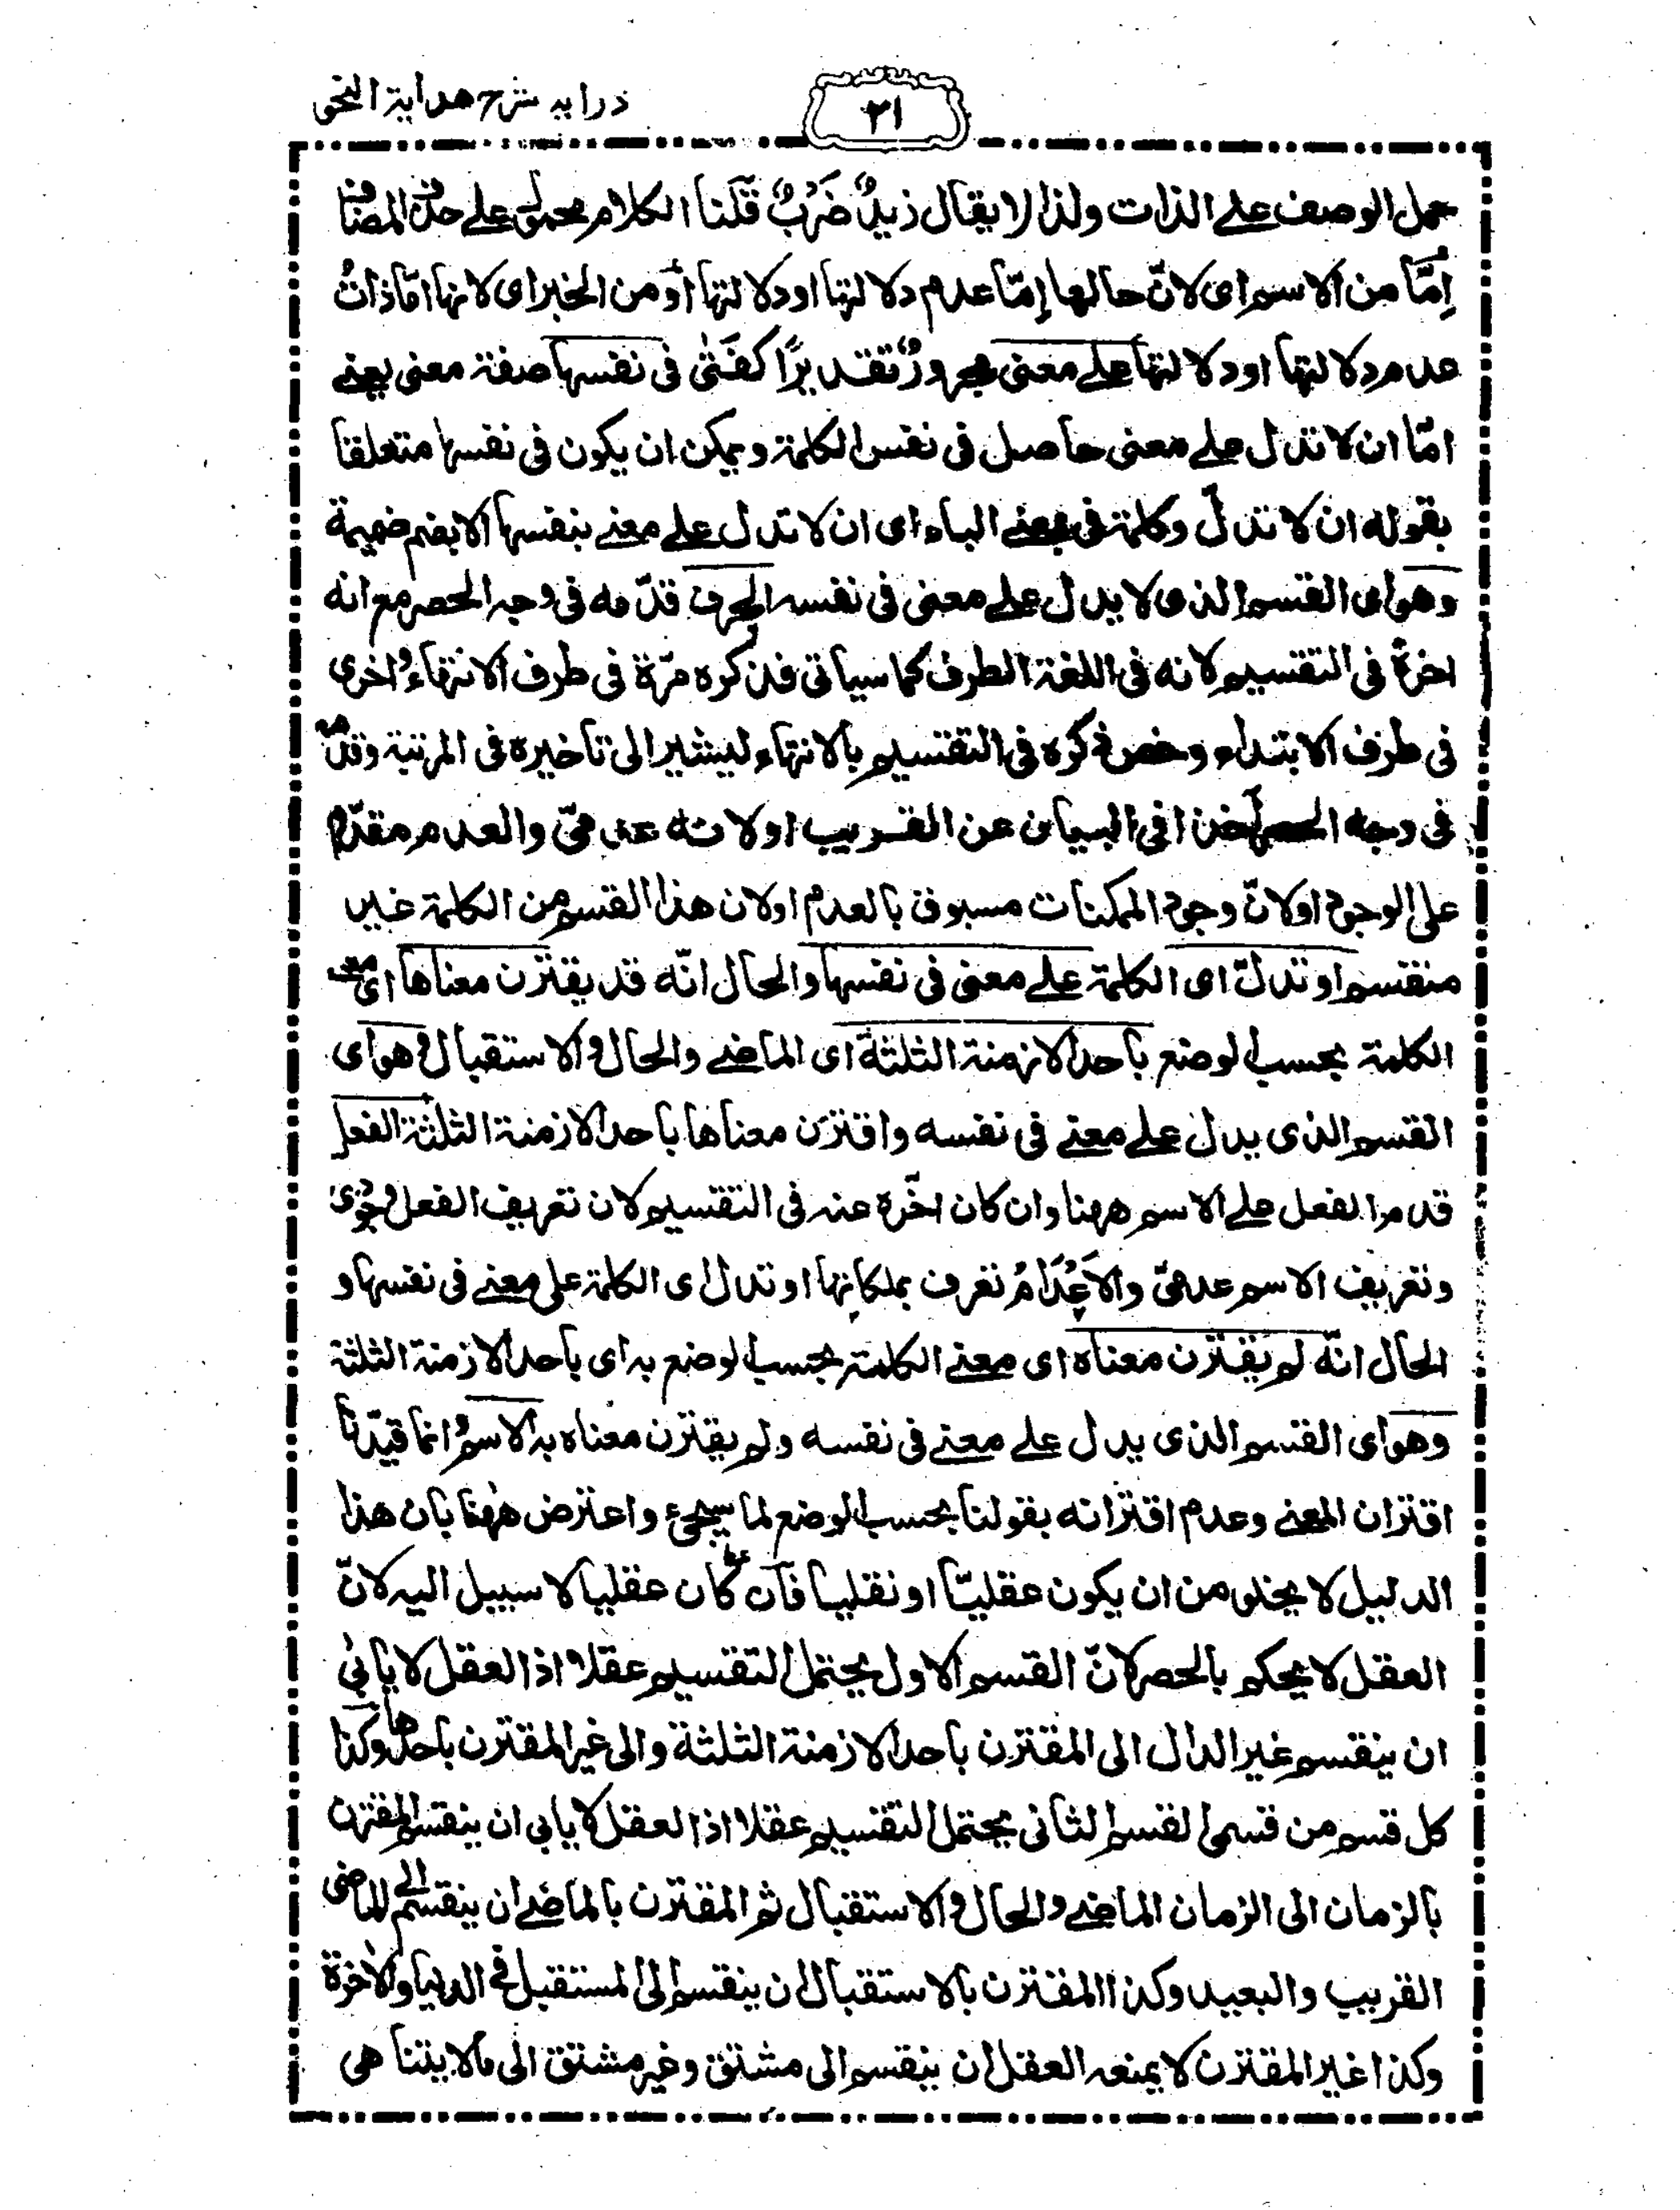 درايه شرح هداية النحو
٢١
حمل الوصف على الذات ولذا لا يقال زيدٌ ضَرْبٌ قلنا الكلام محمول على حذف المضاف
إمّا من الاسم اى لانّ حالها إمّا عدم دلالتها او دلالتها أو من الخبر اى لانها امّا ذاتُ
عدم دلالتها او دلالتها على معنى مجرورٌ تقديرًا كفَتًى فى نفسها صفة معنى يعنى
امّا ان لا تدل على معنى حاصل فى نفس الكلمة ويمكن ان يكون فى نفسها متعلقا
بقوله ان لا تدلّ وكلمة فى بمعنى الباء اى ان لا تدل على معنى بنفسها الا بضم ضميمة
وهو اى القسم الذى لا يدل على معنى فى نفسه الحرف قدّمه فى وجه الحصر مع انه
اخرهٗ فى التقسيم لانه فى اللغة الطرف كما سياتى فذكره مرّة فى طرف الانتهاء واخرى
فى طرف الابتداء وخص ذكره فى التقسيم بالانتهاء ليشير الى تاخيره فى المرتبة وقدّمه
فى وجه الحصر اخذا فى البيان عن القريب او لانه عدمىّ والعدم مقدّم
على الوجود او لانّ وجود الممكنات مسبوق بالعدم او لان هذا القسم من الكلمة غير
منقسم او تدلّ اى الكلمة على معنى فى نفسها والحال انّه قد يقترن معناها اى معنى
الكلمة بحسب الوضع باحد الازمنة الثلثة اى الماضى والحال والاستقبال وهو اى
القسم الذى يدل على معنى فى نفسه واقترن معناها باحد الازمنة الثلثة الفعل
قدم الفعل على الاسم ههنا وان كان اخّره عنه فى التقسيم لان تعريف الفعل وجودى
وتعريف الاسم عدمىّ والاَعْدَامُ تعرف بملكاتها او تدل اى الكلمة على معنى فى نفسها و
الحال انّه لم يقترن معناه اى معنى الكلمة بحسب الوضع به اى باحد الازمنة الثلثة
وهو اى القسم الذى يدل على معنى فى نفسه ولم يقترن معناه به الاسمُ انما قيّدنا
اقتران المعنى وعدم اقترانه بقولنا بحسب الوضع لما سيجىٔ واعترض ههنا بان هذا
الدليل لا يخلو من ان يكون عقليّا او نقليا فان كان عقليا لا سبيل اليه لانّ
العقل لا يحكم بالحصر لانّ القسم الاول يحتمل التقسيم عقلا اذ العقل لا يابىٰ
ان ينقسم غير الدال الى المقترن باحد الازمنة الثلثة والى غير المقترن باحدها وكذا
كل قسم من قسمى القسم الثانى يحتمل التقسيم عقلا اذ العقل لا يابى ان ينقسم المقترن
بالزمان الى الزمان الماضى والحال والاستقبال ثم المقترن بالماضى ان ينقسم الى الماضى
القريب والبعيد وكذا المقترن بالاستقبال ان ينقسم الى المستقبل فى الدنيا والاخرة
وكذا غير المقترن لا يمنعه العقل ان ينقسم الى مشتق وغير مشتق الى مالا يتناهى